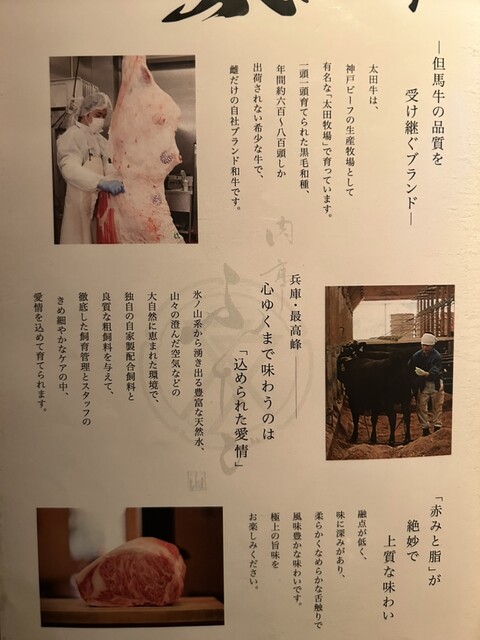 ―但馬牛の品質を
受け継ぐブランド―
太田牛は、
神戸ビーフの生産牧場として
有名な「太田牧場」で育っています。
一頭一頭育てられた黒毛和種、
年間約六百～八百頭しか
出荷されない希少な牛で、
雌だけの自社ブランド和牛です。
兵庫・最高峰―
心ゆくまで味わうのは
「込められた愛情」
氷ノ山系から湧き出る豊富な天然水、
山々の澄んだ空気などの
大自然に恵まれた環境で、
独自の自家製配合飼料と
良質な粗飼料を与えて、
徹底した飼育管理とスタッフの
きめ細やかなケアの中、
愛情を込めて育てられます。
「赤みと脂」が
絶妙で
上質な味わい
融点が低く、
味に深みがあり、
柔らかくなめらかな舌触りで
風味豊かな味わいです。
極上の旨味を
お楽しみください。